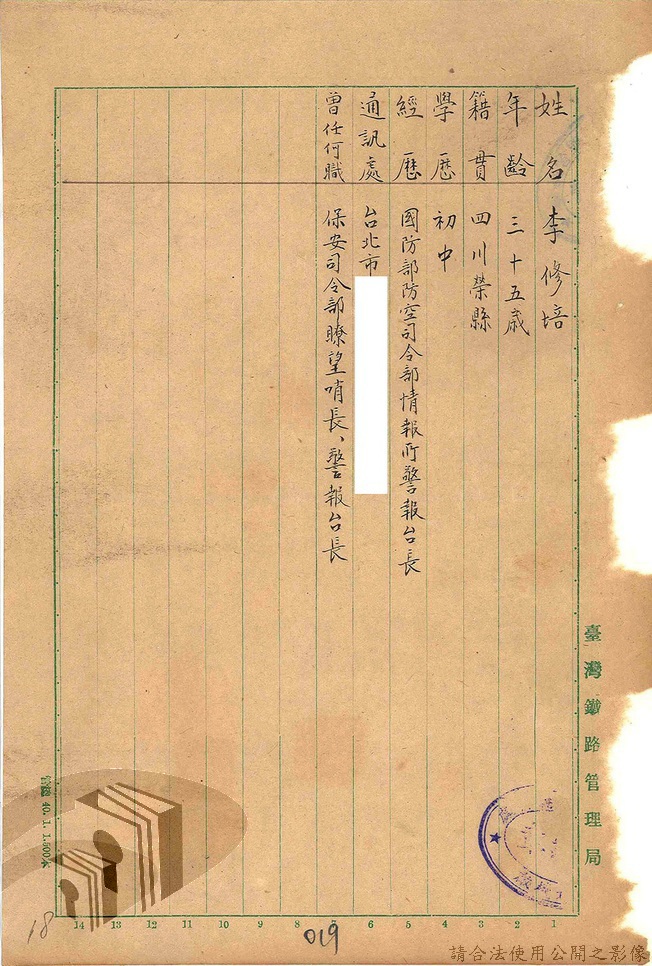 姓名 李修培
年齡 三十五歲
籍貫 四川榮縣
學歷 初中
經歷 國防部防空司令部情報所警報台長
通訊處 台北市
曾任何職 保安司令部瞭望哨長、警報台長
臺灣鐵路管理局
14 13 12 11 10 9 8 7 6 5 4 3 2 1
019
18
請合法使用公開之影像